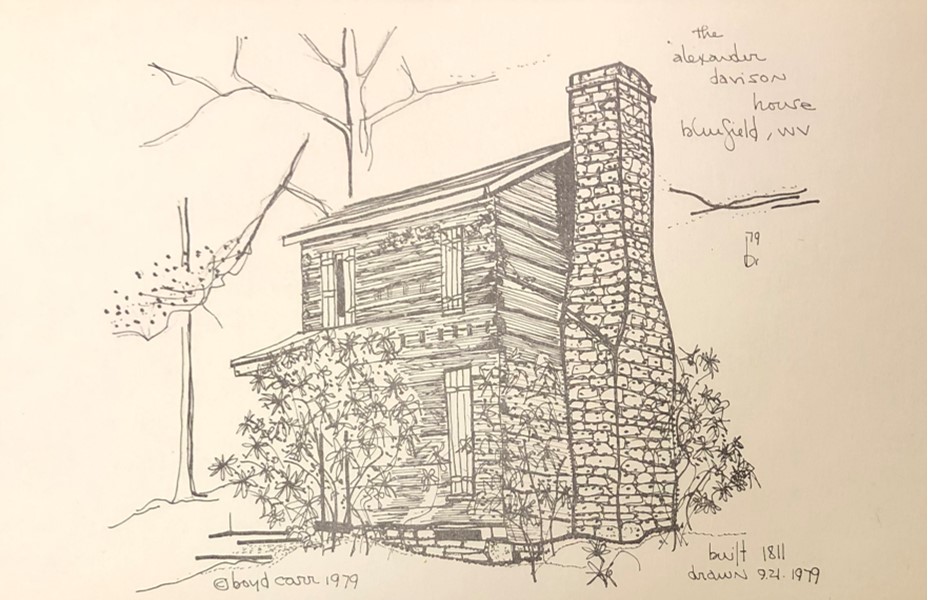 the
alexander
davison
house
bluefield, wv
'79
built 1811
drawn 9.21.1979
©boyd carr 1979